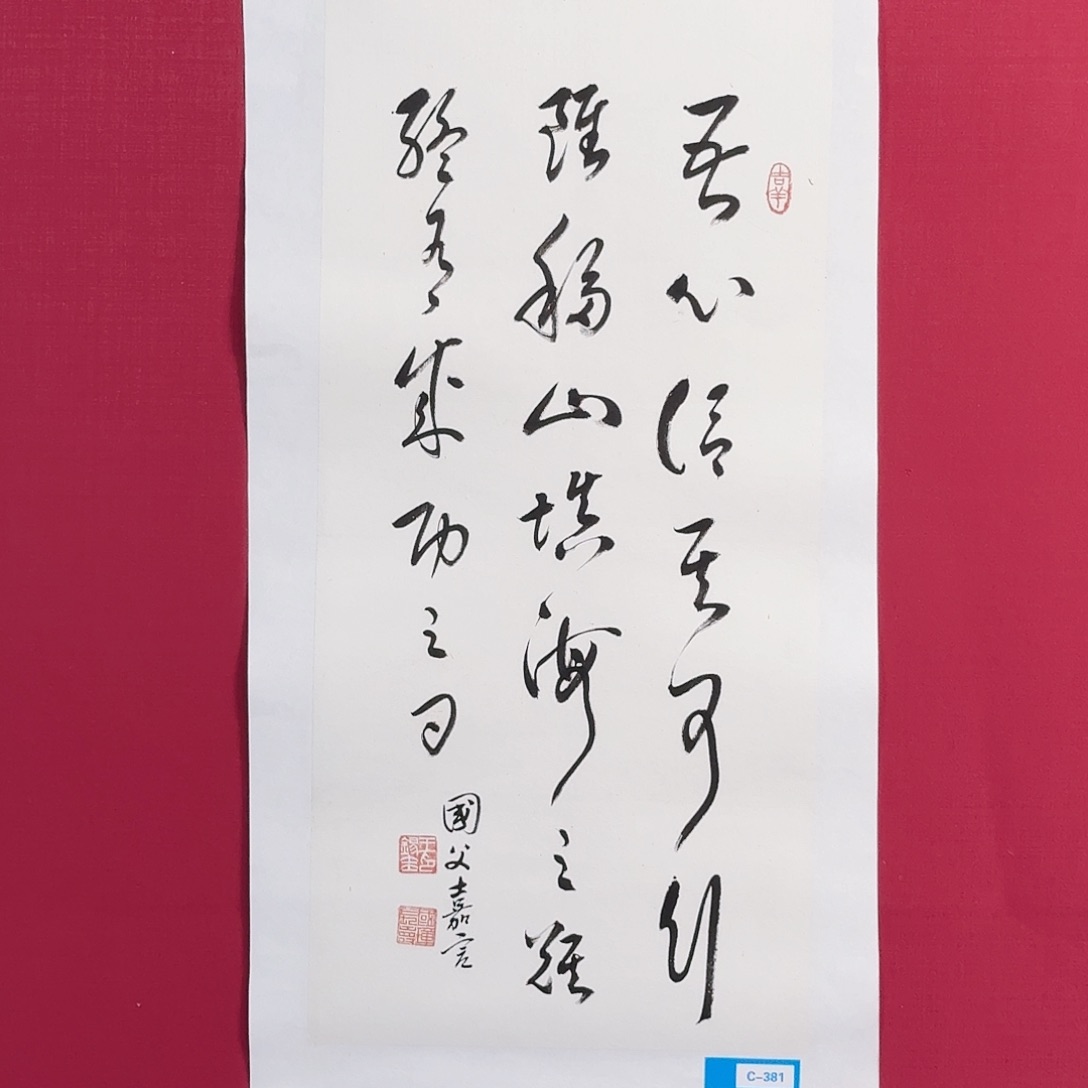 吾心信其可行
雖移山填海之難
終有成功之日
國父嘉言
C-381